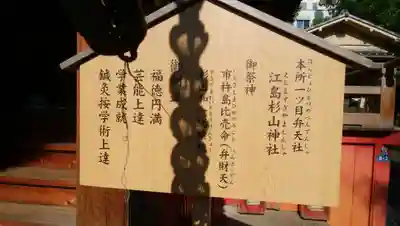 本所一ツ目弁天社
江島杉山神社
御祭神
市杵島比売命(弁財天)
杉山
御
福徳円満
芸能上達
学業成就
鍼灸按学術上達